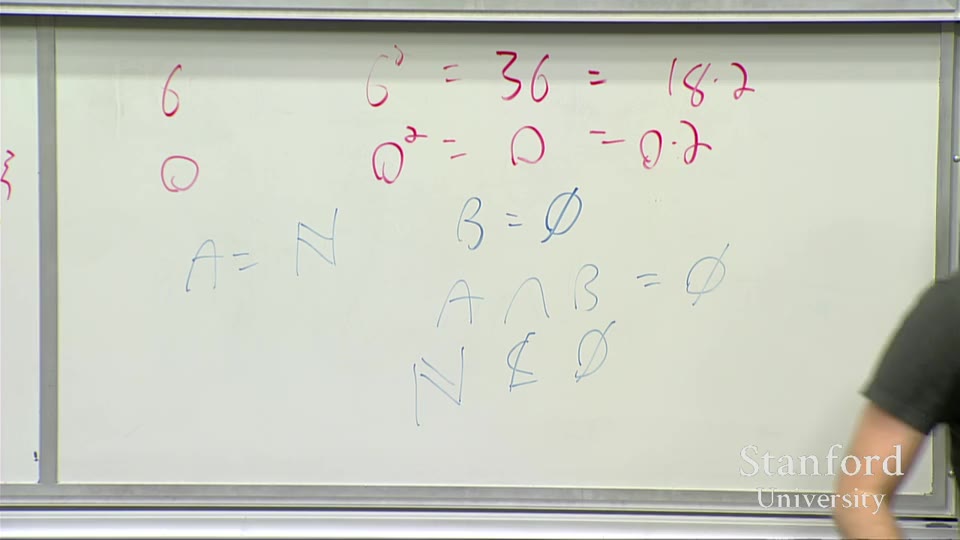 6 6² = 36 = 18·2
0 0² = 0 = 0·2
B = ∅
A = ℕ
A ∩ B = ∅
ℕ ⊈ ∅
Stanford
University